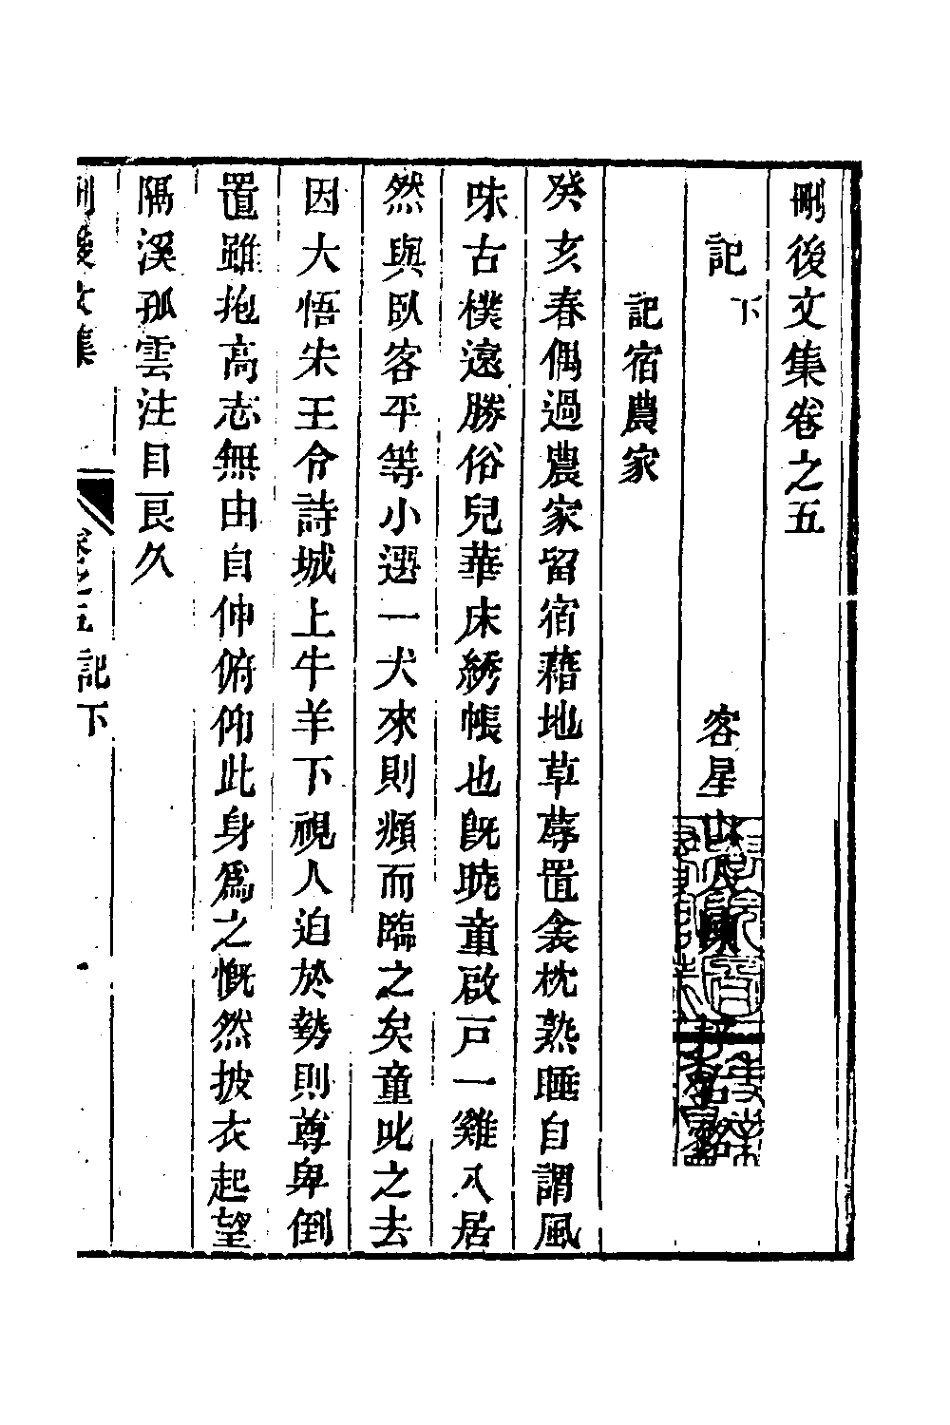 刪後文集卷之五
記下
客星山人陳
記宿農家
癸亥春偶過農家留宿藉地草蓐置衾枕熟睡自謂風
味古樸遠勝俗兒華床綉帳也旣曉童啟戸一雞入居
然與臥客平等小選一犬來則頫而臨之矣童叱之去
因大悟宋王令詩城上牛羊下視人迫於勢則尊卑倒
置雖抱高志無由自伸俯仰此身爲之慨然披衣起望
隔溪孤雲注目良久
刪後文集
卷之五 記下
一